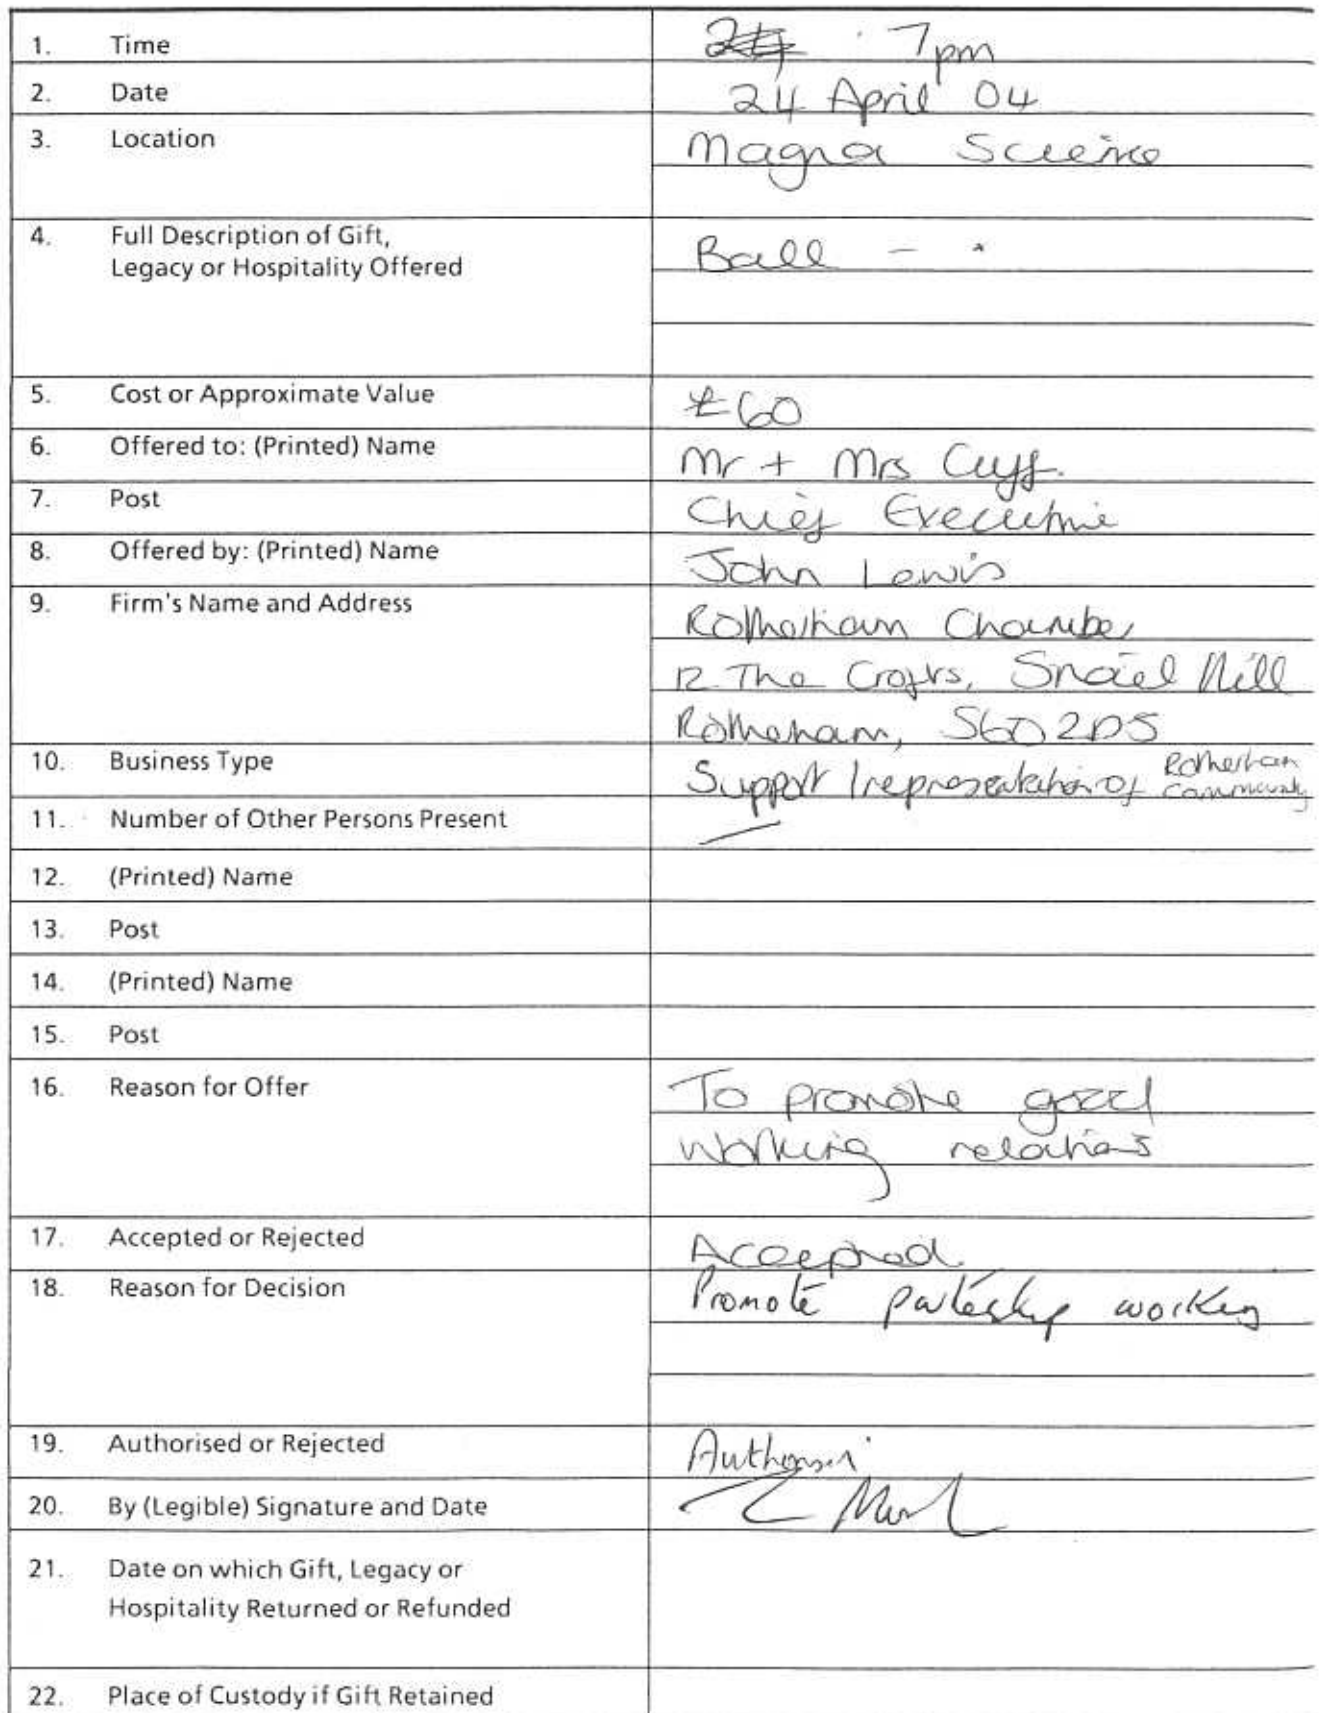 1. Time 7pm
2. Date 24 April 04
3. Location Magna Science
4. Full Description of Gift, Legacy or Hospitality Offered Ball -
5. Cost or Approximate Value £60
6. Offered to: (Printed) Name Mr + Mrs Cuff.
7. Post Chief Executive
8. Offered by: (Printed) Name John Lewis
9. Firm's Name and Address Rotherham Chamber
12 The Crofts, Snail Hill
Rotherham, S60 2DS
10. Business Type Support / representation of Rotherham Community
11. Number of Other Persons Present —
12. (Printed) Name
13. Post
14. (Printed) Name
15. Post
16. Reason for Offer To promote good
working relations
17. Accepted or Rejected Accepted.
18. Reason for Decision Promote partnership working
19. Authorised or Rejected
20. By (Legible) Signature and Date
21. Date on which Gift, Legacy or
Hospitality Returned or Refunded
22. Place of Custody if Gift Retained